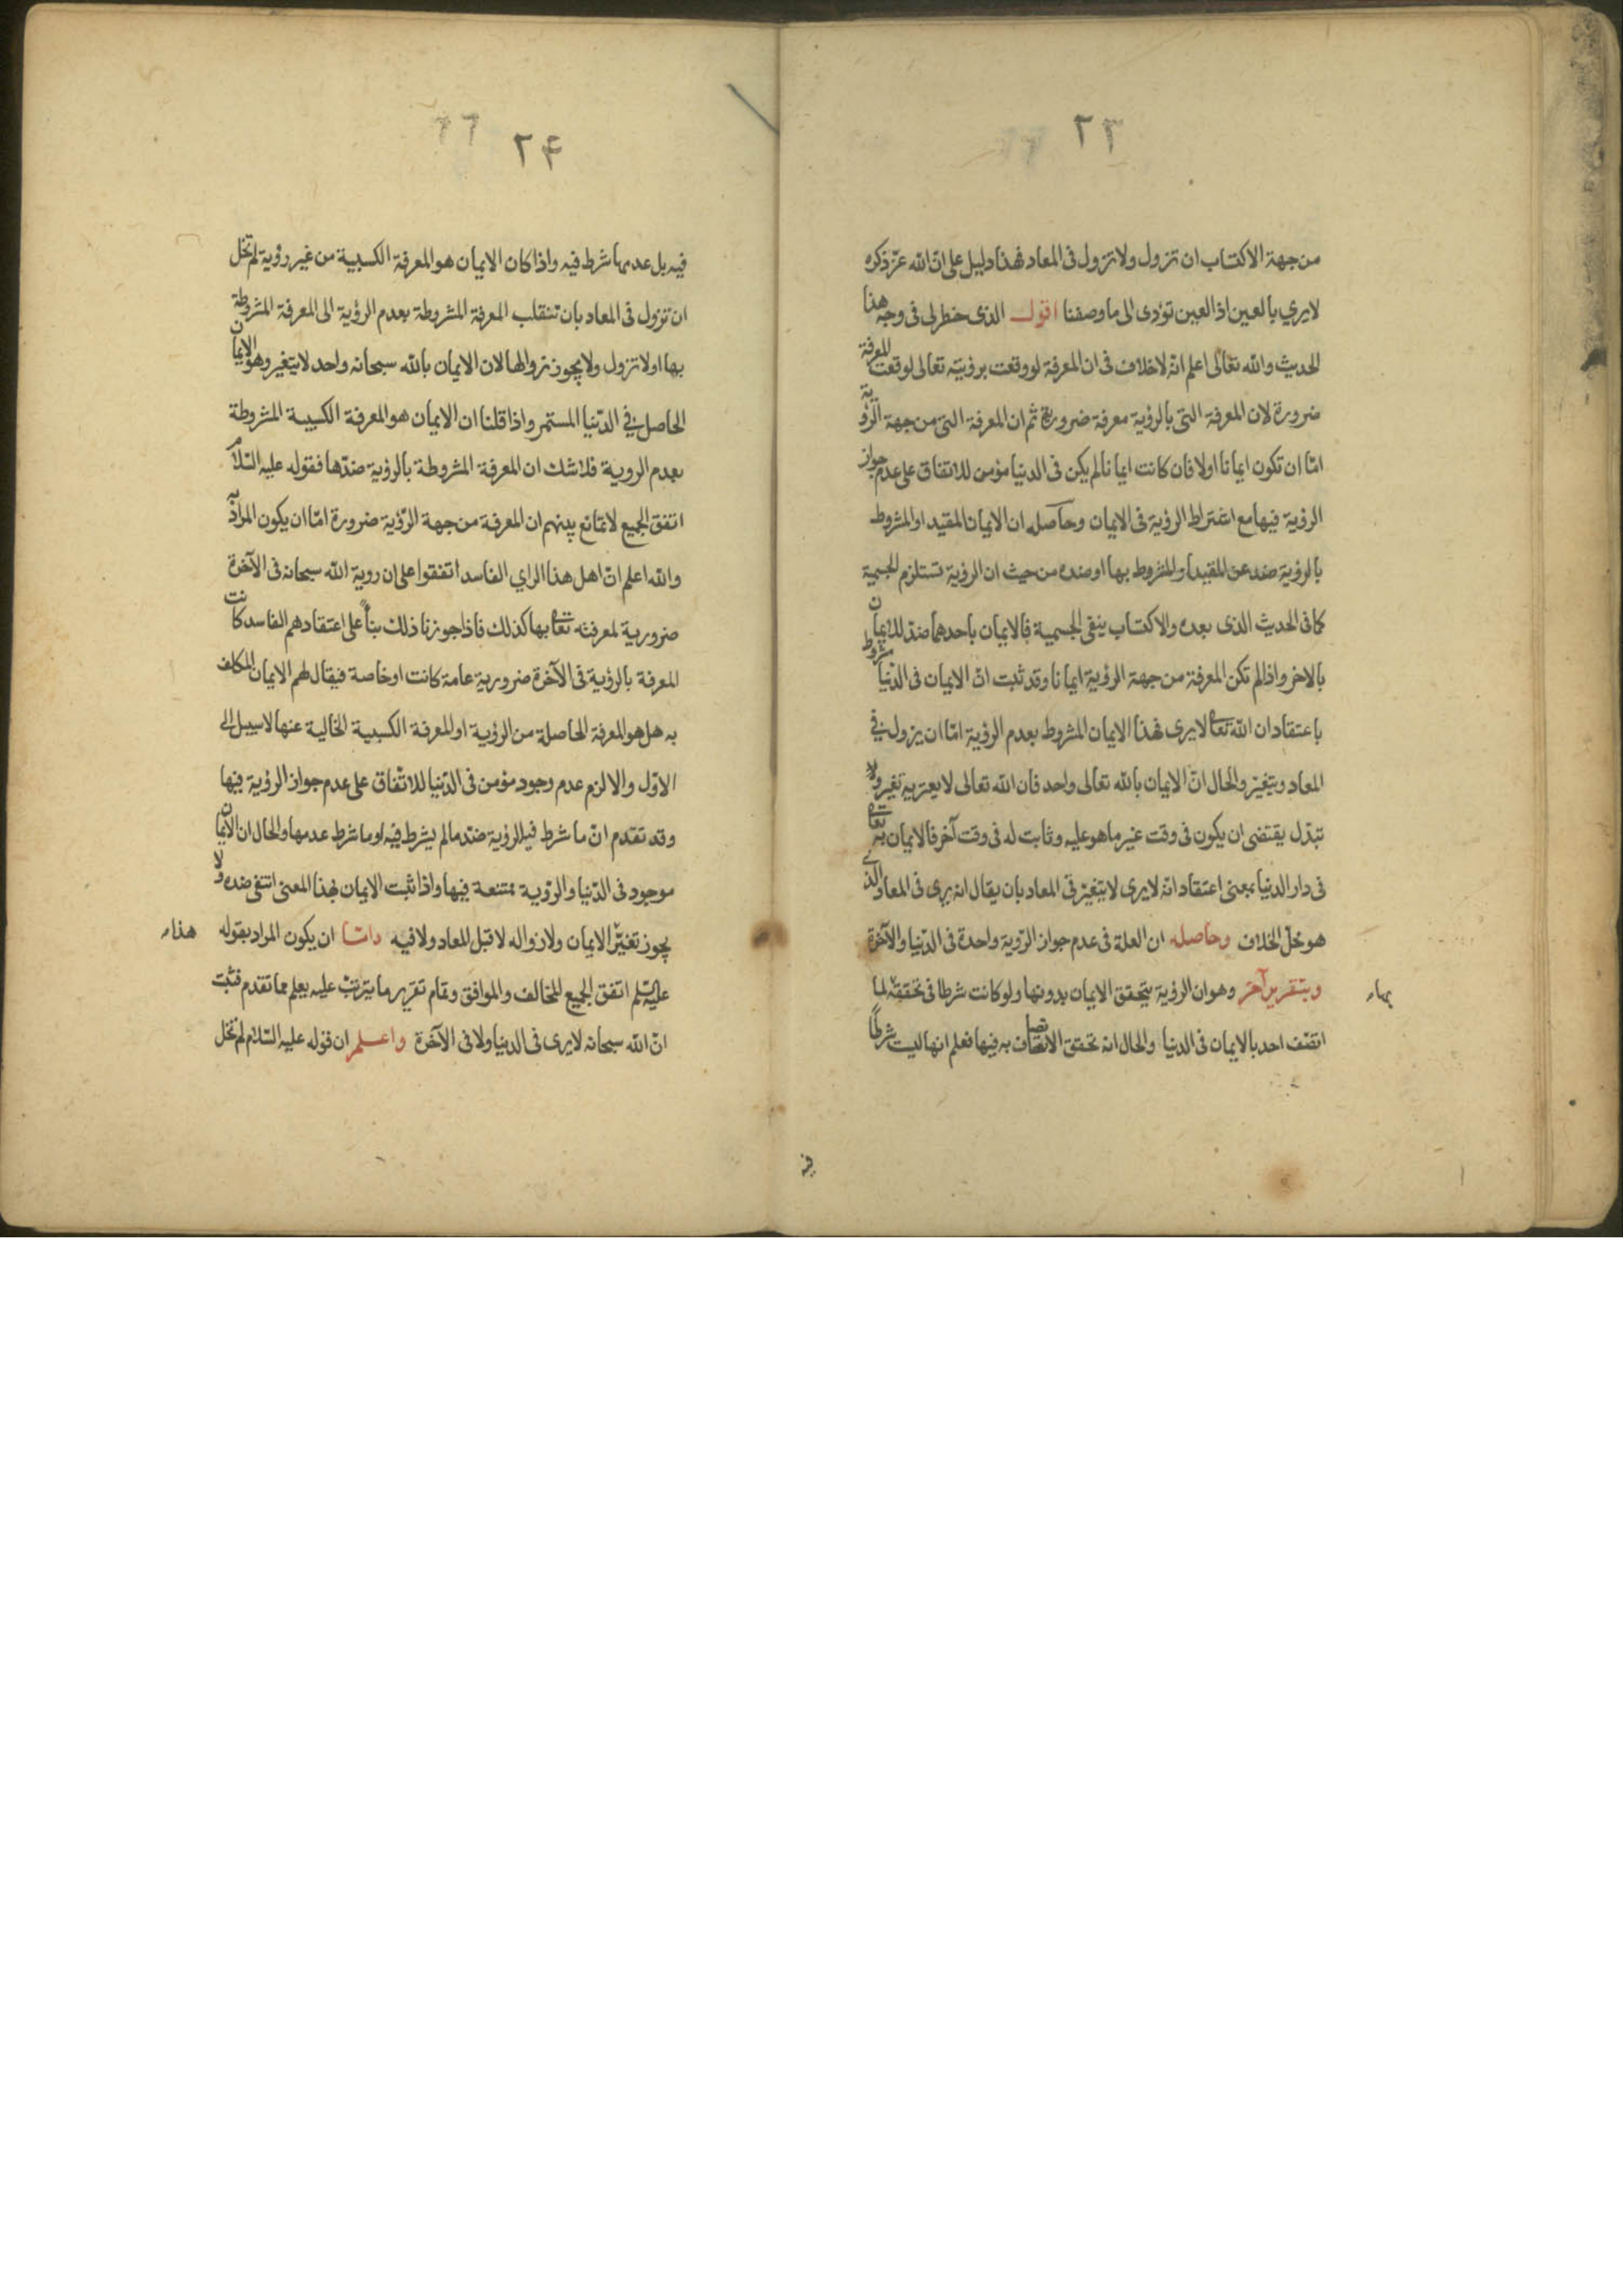 ٢٣
من جهة الاكتساب ان تزول ولا تزول فى المعاد فهذا دليل على انّ الله عزّ ذكره
لا يرى بالعين اذ العين تؤدى الى ما وصفنا اقول الذى خطر لى فى وجه هذا
الحديث والله تعالى اعلم انّه لا خلاف فى ان المعرفة لو وقعت برؤيته تعالى لوقعت المعرفة
ضرورة لان المعرفة التى بالرؤية معرفة ضرورية ثم ان المعرفة التى من جهة الرّؤية
امّا ان تكون ايمانا اولا فان كانت ايمانا لم يكن فى الدنيا مؤمن للاتفاق على عدم جواز
الرؤية فيها مع اشتراط الرؤية فى الايمان وحاصله ان الايمان المقيد او المشروط
بالرؤية ضد عن المقيد او المشروط بها او ضده من حيث ان الرؤية تستلزم الجسمية
كما فى الحديث الذى بعده والاكتساب ينفى الجسمية فالايمان باحدهما ضدّ للايمان
بالاخر واذا لم تكن المعرفة من جهة الرؤية ايمانا وقد ثبت انّ الايمان فى الدّنيا مشروط
باعتقاد ان الله تعالى لا يرى فهذا الايمان المشروط بعدم الرؤية امّا ان يزول فى
المعاد ويتغيّر والحال انّ الايمان بالله تعالى واحد فان الله تعالى لا يعتريه تغير ولا
تبدّل يقتضى ان يكون فى وقت غير ما هو عليه وثابت له فى وقت آخر فالايمان به تعالى
فى دار الدنيا بمعنى اعتقاد انه لا يرى لا يتغيّر فى المعاد بان يقال انه يرى فى المعاد الذى
هو محلّ الخلاف وحاصله ان العلة فى عدم جواز الرّؤية واحدة فى الدّنيا والآخرة
وبتقرير آخر وهو ان الرؤية يتحقق الايمان بدونها ولو كانت شرطا فى تحققه لما
اتّصف احد بالايمان فى الدنيا والحال انه تحقق الاتصاف به فيها فعلم انها ليست شرطًا
فيه
٢۴
فيه بل عدمها شرط فيه واذا كان الايمان هو المعرفة الكسبية من غير رؤية لم تخل
ان تزول فى المعاد بان تنقلب المعرفة المشروطة بعدم الرؤية الى المعرفة المشروطة
بها او لا تزول ولا يجوز زوالها لان الايمان بالله سبحانه واحد لا يتغير وهو الايمان
الحاصل فى الدّنيا المستمر واذا قلنا ان الايمان هو المعرفة الكسبية المشروطة
بعدم الروية فلا شك ان المعرفة المشروطة بالرؤية ضدّها فقوله عليه السّلام
اتفق الجميع لا تمانع بينهم ان المعرفة من جهة الرّؤية ضرورة امّا ان يكون المراد به
والله اعلم انّ اهل هذا الراى الفاسد اتفقوا على ان روية الله سبحانه فى الآخرة
ضرورية لمعرفته تعالى بها كذلك فاذا جوزنا ذلك بناءً على اعتقادهم الفاسد كانت
المعرفة بالرؤية فى الآخرة ضرورية عامة كانت او خاصة فيقال لهم الايمان المكلف
به هل هو المعرفة الحاصلة من الرؤية او المعرفة الكسبية الخالية عنها لا سبيل الى
الاوّل والا لزم عدم وجود مؤمن فى الدّنيا للاتّفاق على عدم جواز الرؤية فيها
وقد تقدم انّ ما شرط فيه الرؤية ضدّ ما لم يشرط فيه او ما شرط عدمها والحال ان الايمان
موجود فى الدّنيا والرّوية ممتنعة فيها واذا ثبت الايمان بهذا المعنى انتفى ضده ولا
يجوز تغيّر الايمان ولا زواله لا قبل المعاد ولا فيه وامّا ان يكون المراد بقوله هذا
عليه السّلم اتفق الجميع المخالف والموافق وتمام تقرير ما يترتب عليه يعلم مما تقدم فثبت
انّ الله سبحانه لا يرى فى الدنيا ولا فى الآخرة واعلم ان قوله عليه السّلام لم تخل